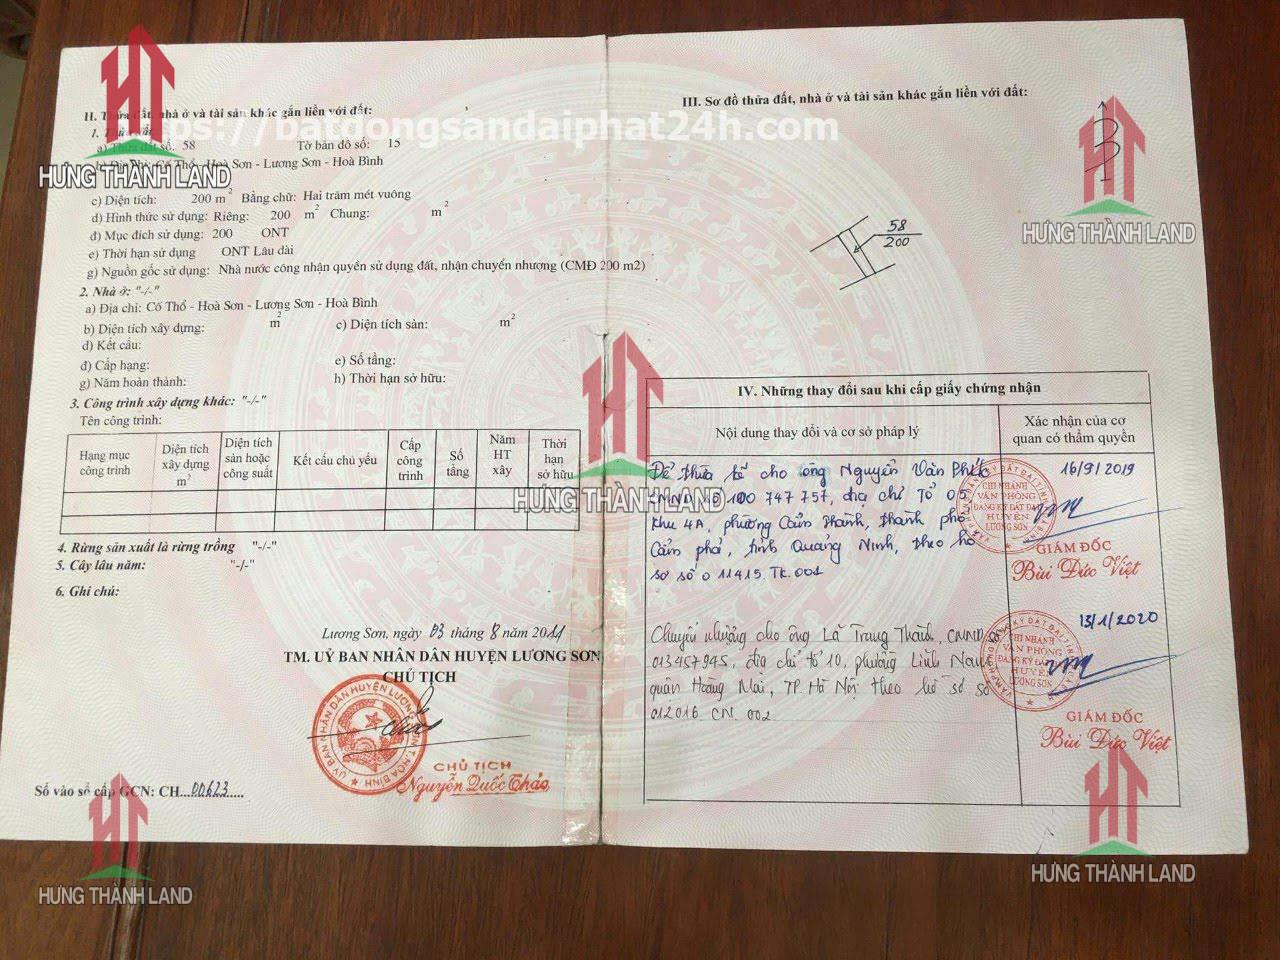 II. Thửa đất, nhà ở và tài sản khác gắn liền với đất:
https://batdongsandaiphat24h.com
1. Thửa đất:
a) Thửa đất số: 58 Tờ bản đồ số: 15
b) Địa chỉ: Cố Thổ - Hoà Sơn - Lương Sơn - Hoà Bình
HƯNG THÀNH LAND
c) Diện tích: 200 m2 Bằng chữ: Hai trăm mét vuông
d) Hình thức sử dụng: Riêng: 200 m2 Chung: m2
đ) Mục đích sử dụng: 200 ONT
e) Thời hạn sử dụng ONT Lâu dài
g) Nguồn gốc sử dụng: Nhà nước công nhận quyền sử dụng đất, nhận chuyển nhượng (CMĐ 200 m2)
2. Nhà ở: "-/-"
a) Địa chỉ: Cố Thổ - Hoà Sơn - Lương Sơn - Hoà Bình
b) Diện tích xây dựng: m2 c) Diện tích sàn: m2
d) Kết cấu:
đ) Cấp hạng: e) Số tầng:
g) Năm hoàn thành: h) Thời hạn sở hữu:
3. Công trình xây dựng khác: "-/-"
Tên công trình:
Hạng mục công trình
Diện tích xây dựng m2
Diện tích sàn hoặc công suất
Kết cấu chủ yếu
Cấp công trình
Số tầng
Năm HT xây
Thời hạn sở hữu
4. Rừng sản xuất là rừng trồng "-/-"
5. Cây lâu năm: "-/-"
6. Ghi chú:
Lương Sơn, ngày 03 tháng 8 năm 2011
TM. UỶ BAN NHÂN DÂN HUYỆN LƯƠNG SƠN
CHỦ TỊCH
CHỦ TỊCH
Nguyễn Quốc Thảo
Số vào sổ cấp GCN: CH...00623....
HƯNG THÀNH LAND
III. Sơ đồ thửa đất, nhà ở và tài sản khác gắn liền với đất:
B
HƯNG THÀNH LAND
58
200
IV. Những thay đổi sau khi cấp giấy chứng nhận
Nội dung thay đổi và cơ sở pháp lý
Xác nhận của cơ quan có thẩm quyền
Để thừa kế cho ông Nguyễn Văn
HƯNG THÀNH LAND
CMND số 100 747 757, địa chỉ Tổ 05
Khu 4A, phường Cẩm Thành, thành phố
Cẩm phả, tỉnh Quảng Ninh, theo hồ
sơ số 011415.TK.001
16/9/2019
CHI NHÁNH
VĂN PHÒNG
ĐĂNG KÝ ĐẤT ĐAI
HUYỆN
LƯƠNG SƠN
GIÁM ĐỐC
Bùi Đức Việt
Chuyển nhượng cho ông Lã Trung Thành, CMND số
013457945, địa chỉ tổ 10, phường Lĩnh Nam
quận Hoàng Mai, TP Hà Nội theo hồ sơ số
012016. CN. 002
13/1/2020
CHI NHÁNH
VĂN PHÒNG
ĐĂNG KÝ ĐẤT ĐAI
HUYỆN
LƯƠNG SƠN
GIÁM ĐỐC
Bùi Đức Việt
HƯNG THÀNH LAND